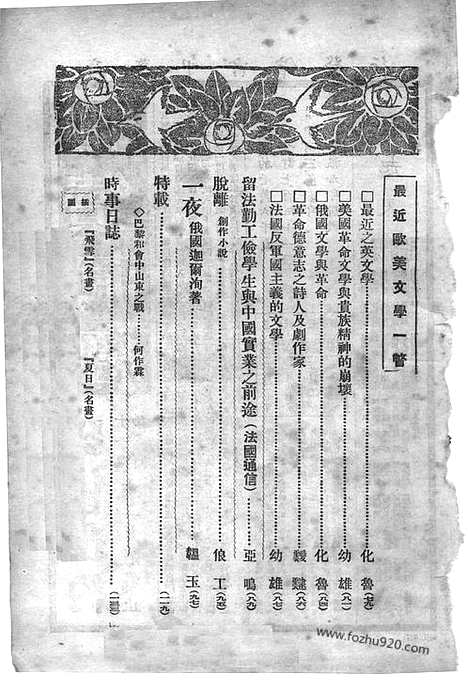 最近歐美文學一瞥
□最近之英文學……化魯(七九)
□美國革命文學與貴族精神的崩壞……幼雄(八一)
□俄國文學與革命……化魯(八四)
□革命德意志之詩人及劇作家……(八六)
□法國反軍國主義的文學……幼雄(八七)
留法勤工儉學生與中國實業之前途(法國通信)……亞鳴(八九)
脫離 創作小說……俍工(九五)
一夜 俄國迦爾洵著……韞玉(九七)
特載……(一一九)
◇巴黎和會中山東之戰……何作霖
時事日誌……
插圖
『飛雪』(名畫)
『夏日』(名畫)
www.fozhu920.com